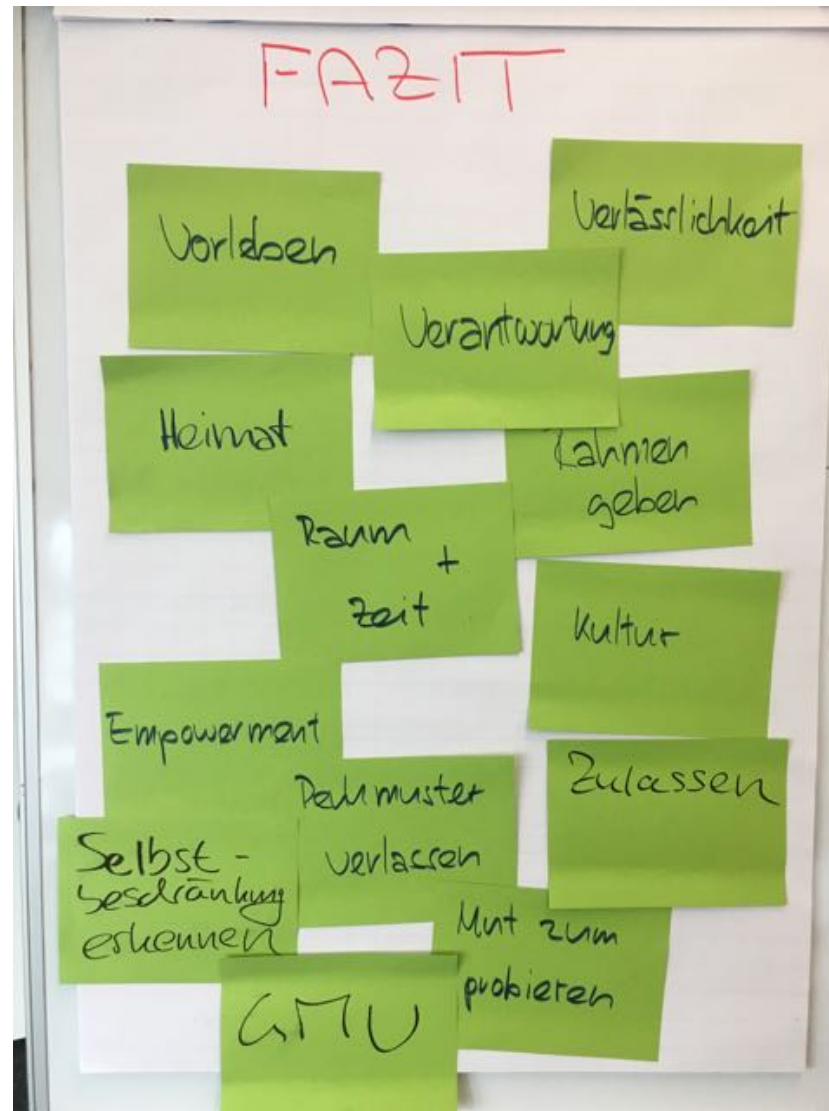 FAZIT
Vorleben
Verlässlichkeit
Verantwortung
Heimat
Rahmen
geben
Raum
+
Zeit
Kultur
Empowerment
Denkmuster
verlassen
Zulassen
Selbst-
beschränkung
erkennen
Mut zum
probieren
GMU